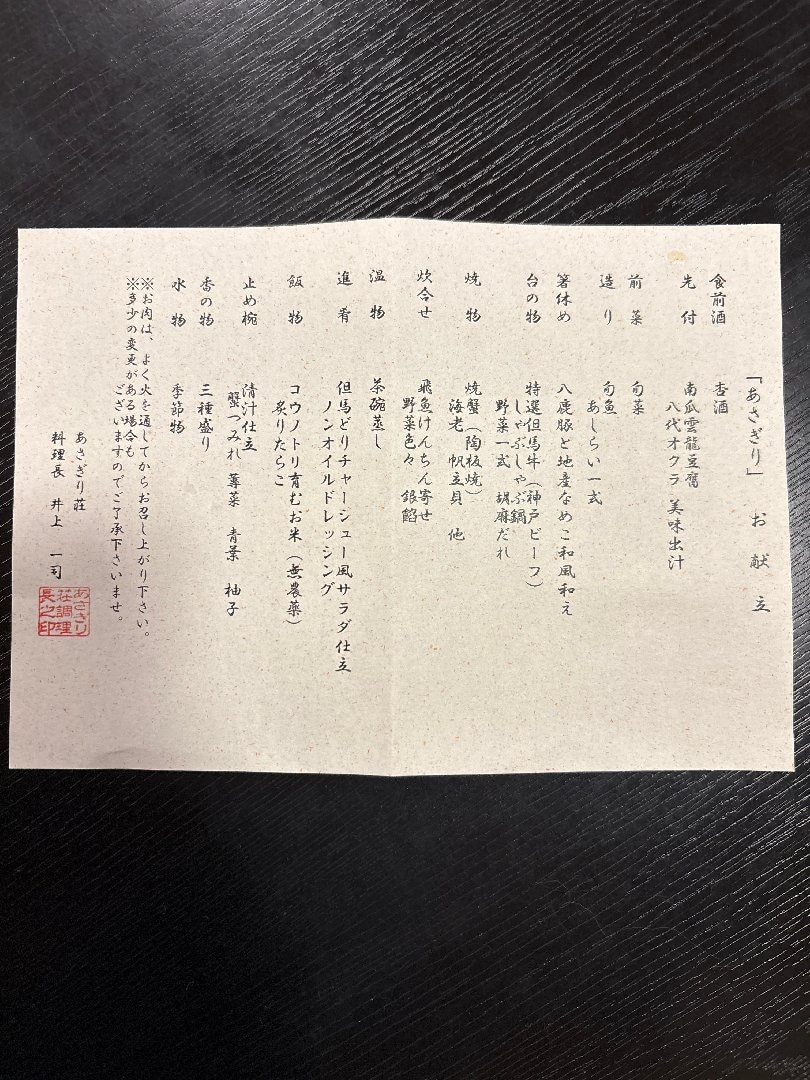 「あさぎり」 お献立
食前酒 杏酒
先付 南瓜雲龍豆腐
八代オクラ 美味出汁
前菜 旬菜
造り 旬魚
あしらい一式
箸休め 八鹿豚と地産なめこ和風和え
台の物 特選但馬牛(神戸ビーフ)
しゃぶしゃぶ鍋
野菜一式 胡麻だれ
焼物 焼蟹(陶板焼)
海老 帆立貝 他
炊合せ 飛魚けんちん寄せ
野菜色々 銀餡
温物 茶碗蒸し
進肴 但馬どりチャーシュー風サラダ仕立
ノンオイルドレッシング
飯物 コウノトリ育むお米(無農薬)
炙りたらこ
止め椀 清汁仕立
蟹つみれ 蓴菜 青葉 柚子
香の物 三種盛り
水物 季節物
※お肉は、よく火を通してからお召し上がり下さい。
※多少の変更がある場合も
ございますのでご了承下さいませ。
あさぎり荘
料理長 井上 一司
あさぎり
荘調理
長之印